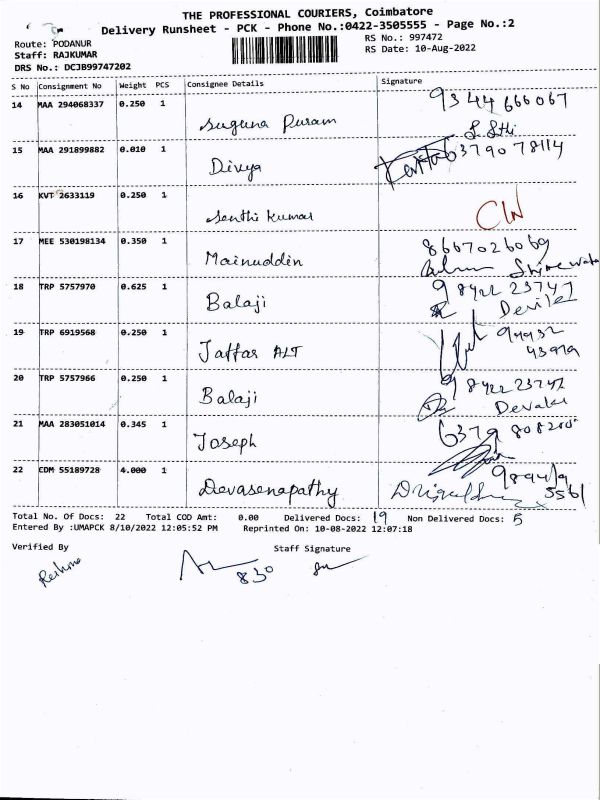 THE PROFESSIONAL COURIERS, Coimbatore
Delivery Runsheet - PCK - Phone No.:0422-3505555 - Page No.:2
Route: PODANUR
RS No.: 997472
Staff: RAJKUMAR
RS Date: 10-Aug-2022
DRS No.: DCJB99747202
S No Consignment No Weight PCS Consignee Details Signature
14 MAA 294068337 0.250 1 Suguna Puram 9344666067
15 MAA 291899882 0.010 1 Divya
16 KVT 2633119 0.250 1 Senthi Kumar
17 MEE 530198134 0.350 1 Mainuddin 8667026069
18 TRP 5757970 0.625 1 Balaji 98422 23747
19 TRP 6919568 0.250 1 Jaffar ALT
20 TRP 5757966 0.250 1 Balaji Devaki
21 MAA 283051014 0.345 1 Joseph
22 CDM 55189728 4.000 1 Devasenapathy
Total No. Of Docs: 22 Total COD Amt: 0.00 Delivered Docs: 19 Non Delivered Docs: 5
Entered By :UMAPCK 8/10/2022 12:05:52 PM Reprinted On: 10-08-2022 12:07:18
Verified By Staff Signature
830